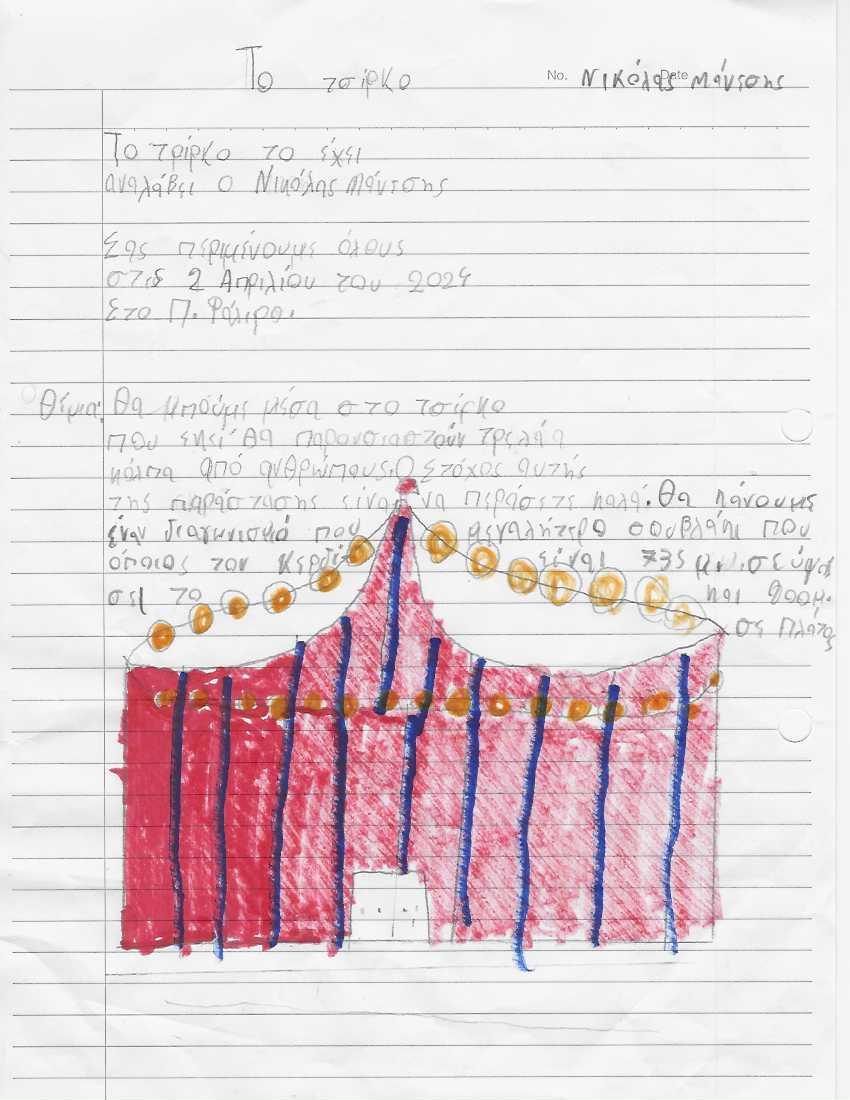 Το τσίρκο
No. Date Νικόλας Μάντσης
Το τρίρκο το έχει
αναλάβει ο Νικόλας Μάντσης
Σας περιμένουμε όλους
στις 2 Απριλίου του 2024
Στο Π. Φάληρο.
Θέμα: Θα μπούμε μέσα στο τσίρκο
που εκεί θα παρουσιαστούν τρελά
κόλπα από ανθρώπους. Ο Στόχος αυτής
της παράστασης είναι να περάσετε καλά. Θα κάνουμε
έναν διαγωνισμό που μεγαλήτερο σουβλάκι που
όποιος τον κερδί είναι 735 μ.
σει το και 900μ.
σε πλάτος